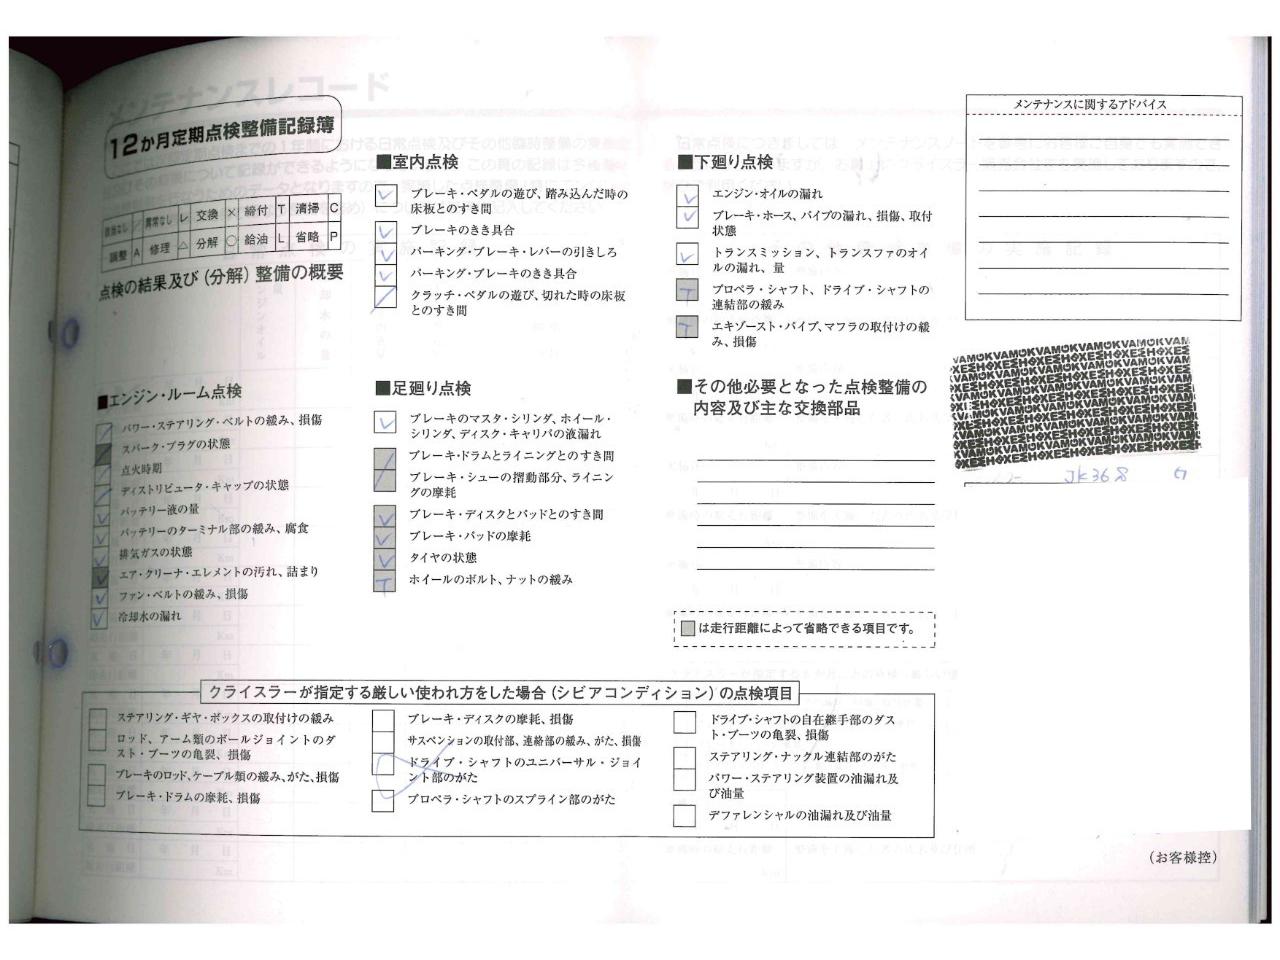 12か月定期点検整備記録簿
該当なし ／ 異常なし レ 交換 × 締付 T 清掃 C
調整 A 修理 △ 分解 ○ 給油 L 省略 P
点検の結果及び(分解)整備の概要
■エンジン・ルーム点検
パワー・ステアリング・ベルトの緩み、損傷
スパーク・プラグの状態
点火時期
ディストリビュータ・キャップの状態
バッテリー液の量
バッテリーのターミナル部の緩み、腐食
排気ガスの状態
エア・クリーナ・エレメントの汚れ、詰まり
ファン・ベルトの緩み、損傷
冷却水の漏れ
■室内点検
ブレーキ・ペダルの遊び、踏み込んだ時の
床板とのすき間
ブレーキのきき具合
パーキング・ブレーキ・レバーの引きしろ
パーキング・ブレーキのきき具合
クラッチ・ペダルの遊び、切れた時の床板
とのすき間
■足廻り点検
ブレーキのマスタ・シリンダ、ホイール・
シリンダ、ディスク・キャリパの液漏れ
ブレーキ・ドラムとライニングとのすき間
ブレーキ・シューの摺動部分、ライニン
グの摩耗
ブレーキ・ディスクとパッドとのすき間
ブレーキ・パッドの摩耗
タイヤの状態
T ホイールのボルト、ナットの緩み
■下廻り点検
エンジン・オイルの漏れ
ブレーキ・ホース、パイプの漏れ、損傷、取付
状態
トランスミッション、トランスファのオイ
ルの漏れ、量
T プロペラ・シャフト、ドライブ・シャフトの
連結部の緩み
T エキゾースト・パイプ、マフラの取付けの緩
み、損傷
■その他必要となった点検整備の
内容及び主な交換部品
は走行距離によって省略できる項目です。
メンテナンスに関するアドバイス
JK368
クライスラーが指定する厳しい使われ方をした場合(シビアコンディション)の点検項目
ステアリング・ギヤ・ボックスの取付けの緩み
ロッド、アーム類のボールジョイントのダ
スト・ブーツの亀裂、損傷
ブレーキのロッド、ケーブル類の緩み、がた、損傷
ブレーキ・ドラムの摩耗、損傷
ブレーキ・ディスクの摩耗、損傷
サスペンションの取付部、連絡部の緩み、がた、損傷
ドライブ・シャフトのユニバーサル・ジョイ
ント部のがた
プロペラ・シャフトのスプライン部のがた
ドライブ・シャフトの自在継手部のダス
ト・ブーツの亀裂、損傷
ステアリング・ナックル連結部のがた
パワー・ステアリング装置の油漏れ及
び油量
デファレンシャルの油漏れ及び油量
(お客様控)